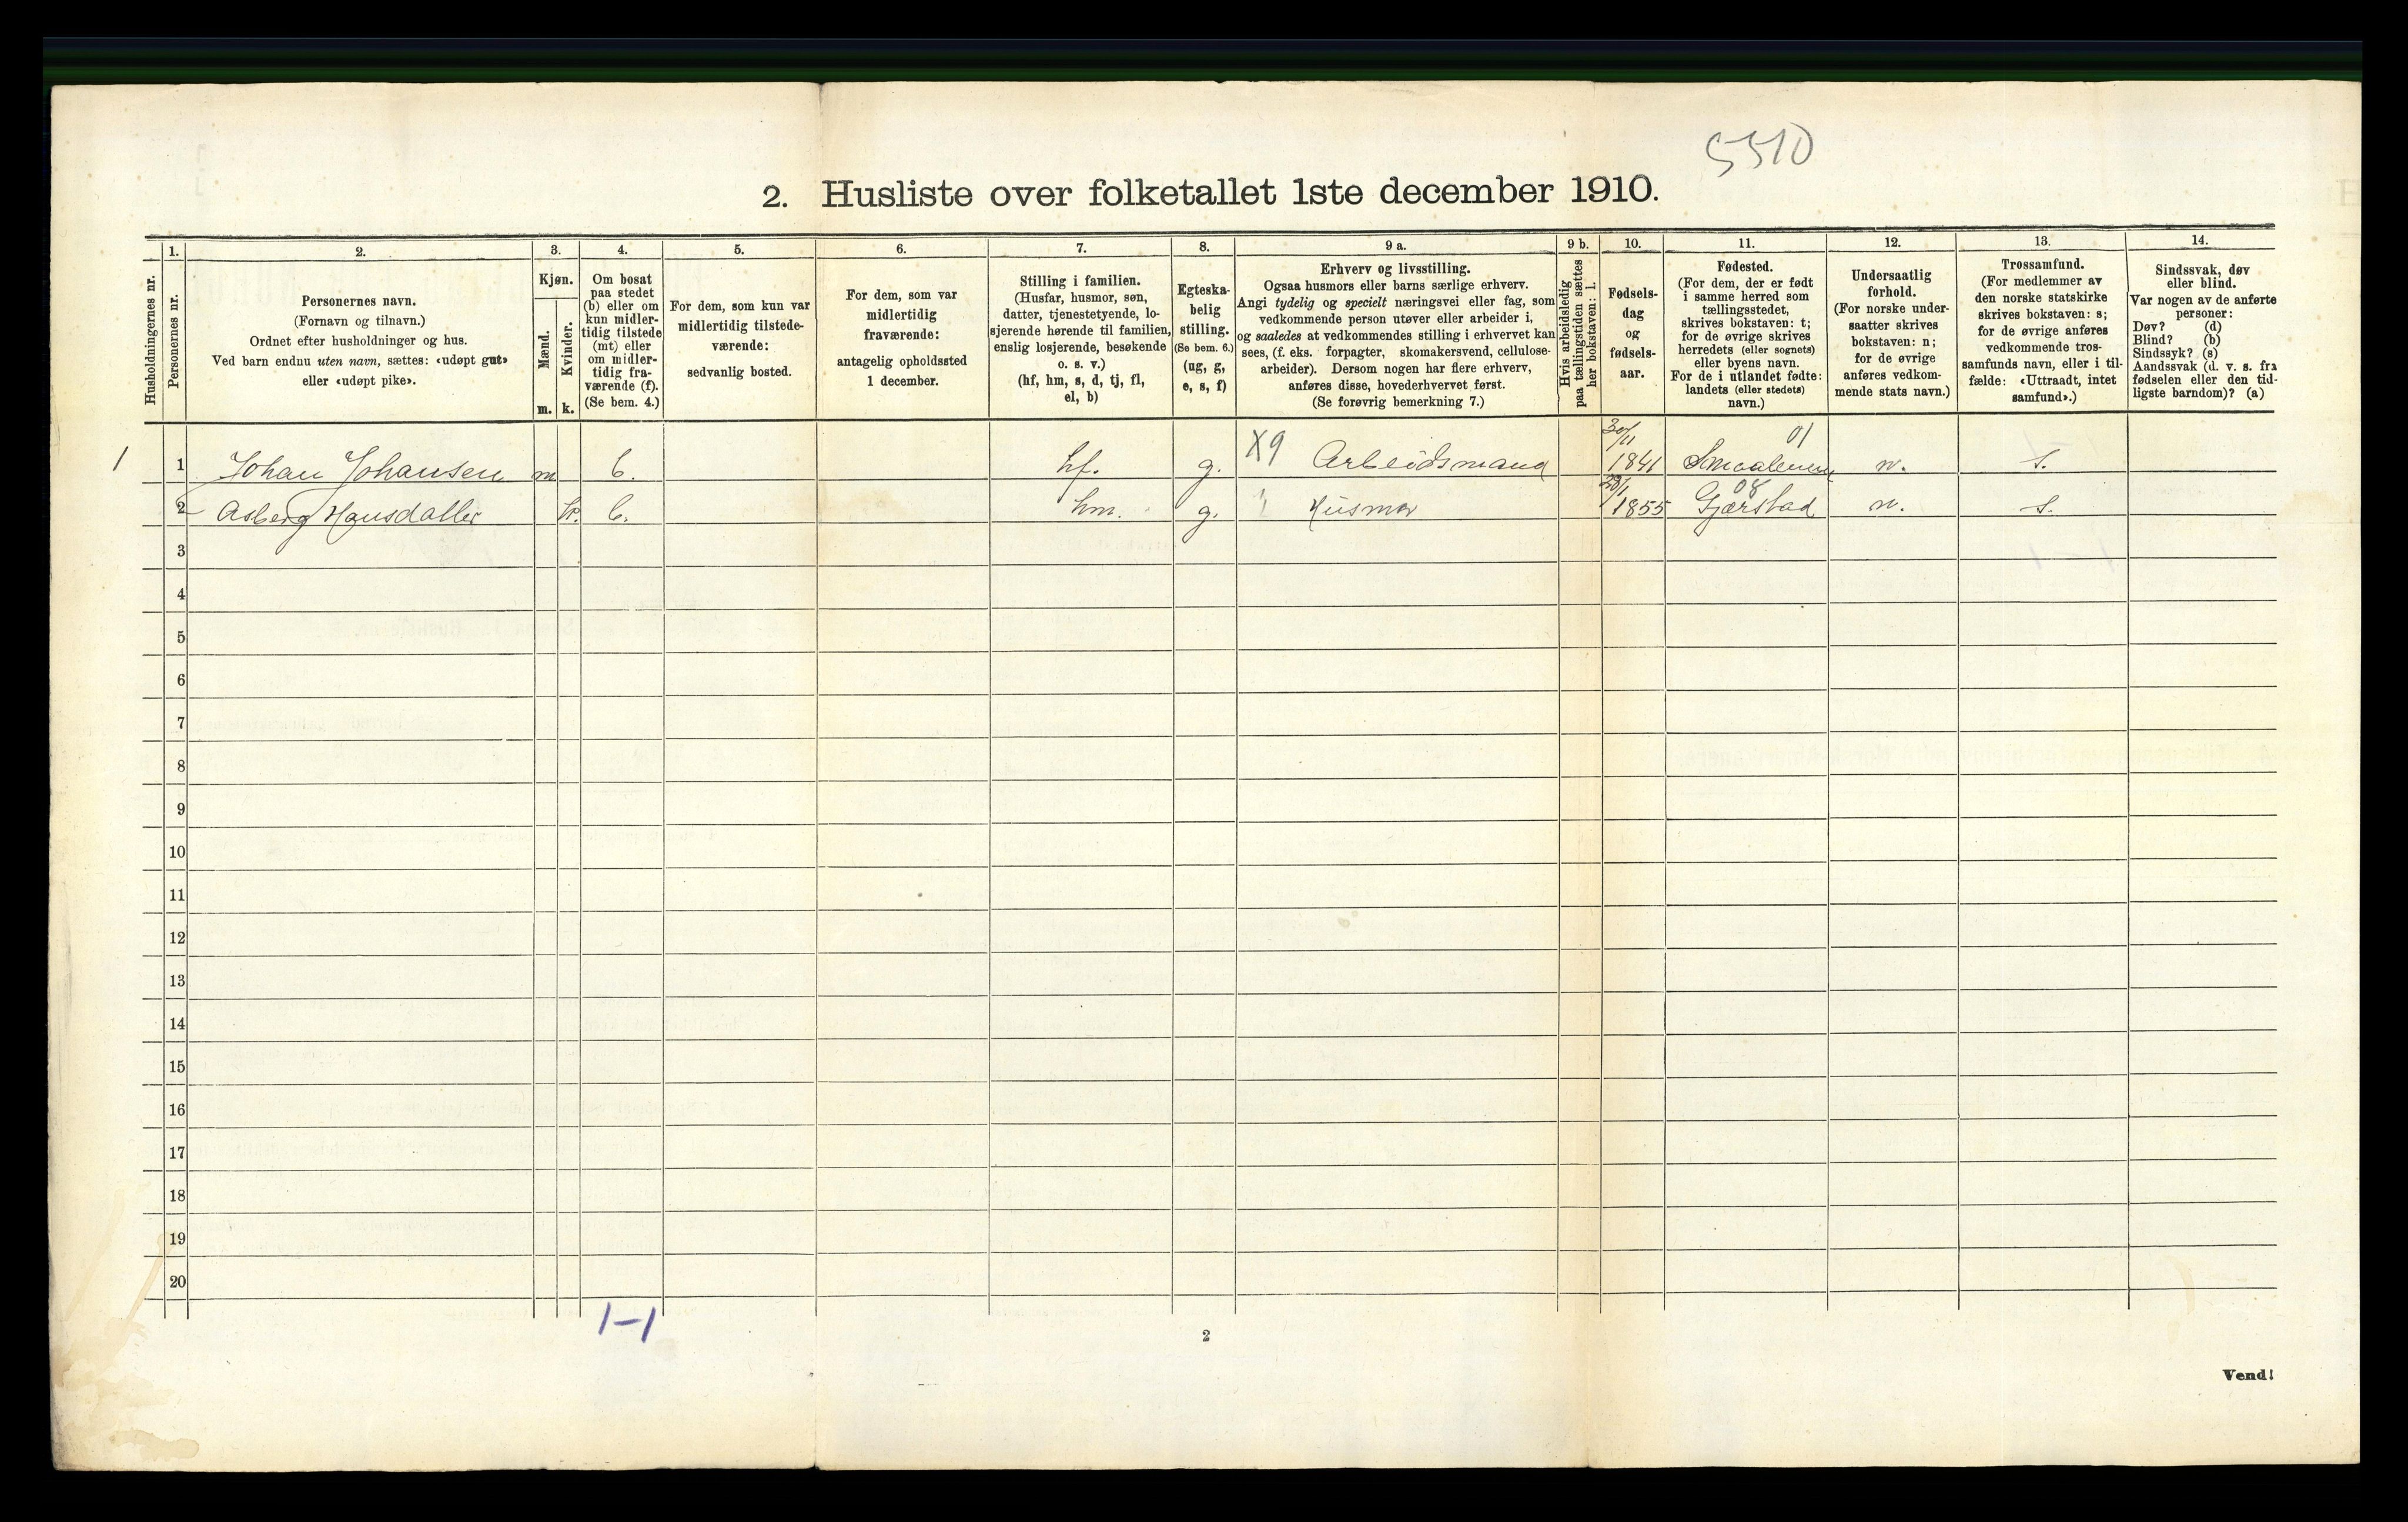 5510
2. Husliste over folketallet 1ste december 1910.
Husholdningernes nr.
1.
Personernes nr.
2.
Personernes navn.
(Fornavn og tilnavn.)
Ordnet efter husholdninger og hus.
Ved barn endnu uten navn, sættes: «udøpt gut»
eller «udøpt pike».
3.
Kjøn.
Mænd.
Kvinder.
m. k.
4.
Om bosat
paa stedet
(b) eller om
kun midler-
tidig tilstede
(mt) eller
om midler-
tidig fra-
værende (f).
(Se bem. 4.)
5.
For dem, som kun var
midlertidig tilstede-
værende:
sedvanlig bosted.
6.
For dem, som var
midlertidig
fraværende:
antagelig opholdssted
1 december.
7.
Stilling i familien.
(Husfar, husmor, søn,
datter, tjenestetyende, lo-
sjerende hørende til familien,
enslig losjerende, besøkende
o. s. v.)
(hf, hm, s, d, tj, fl,
el, b)
8.
Egteska-
belig
stilling.
(Se bem. 6.)
(ug, g,
e, s, f)
9 a.
Erhverv og livsstilling.
Ogsaa husmors eller barns særlige erhverv.
Angi tydelig og specielt næringsvei eller fag, som
vedkommende person utøver eller arbeider i,
og saaledes at vedkommendes stilling i erhvervet kan
sees, (f. eks. forpagter, skomakersvend, cellulose-
arbeider). Dersom nogen har flere erhverv,
anføres disse, hovederhvervet først.
(Se forøvrig bemerkning 7.)
9 b.
Hvis arbeidsledig
paa tællingstiden sættes
her bokstaven: l.
10.
Fødsels-
dag
og
fødsels-
aar.
11.
Fødested.
(For dem, der er født
i samme herred som
tællingsstedet,
skrives bokstaven: t;
for de øvrige skrives
herredets (eller sognets)
eller byens navn.
For de i utlandet fødte:
landets (eller stedets)
navn.)
12.
Undersaatlig
forhold.
(For norske under-
saatter skrives
bokstaven: n;
for de øvrige
anføres vedkom-
mende stats navn.)
13.
Trossamfund.
(For medlemmer av
den norske statskirke
skrives bokstaven: s;
for de øvrige anføres
vedkommende tros-
samfunds navn, eller i til-
fælde: «Uttraadt, intet
samfund».)
14.
Sindssvak, døv
eller blind.
Var nogen av de anførte
personer:
Døv? (d)
Blind? (b)
Sindssyk? (s)
Aandssvak (d. v. s. fra
fødselen eller den tid-
ligste barndom)? (a)
1 1 Johan Johansen m b. hf. g. X9 Arbeidsmand 30/11 1841 01 Smaalenene n. s.
2 Asberg Hansdatter k. b. hm. g. Husmor 1855 08 Gjerstad n. s.
3
4
5
6
7
8
9
10
11
12
13
14
15
16
17
18
19
20
1-1
2
Vend!